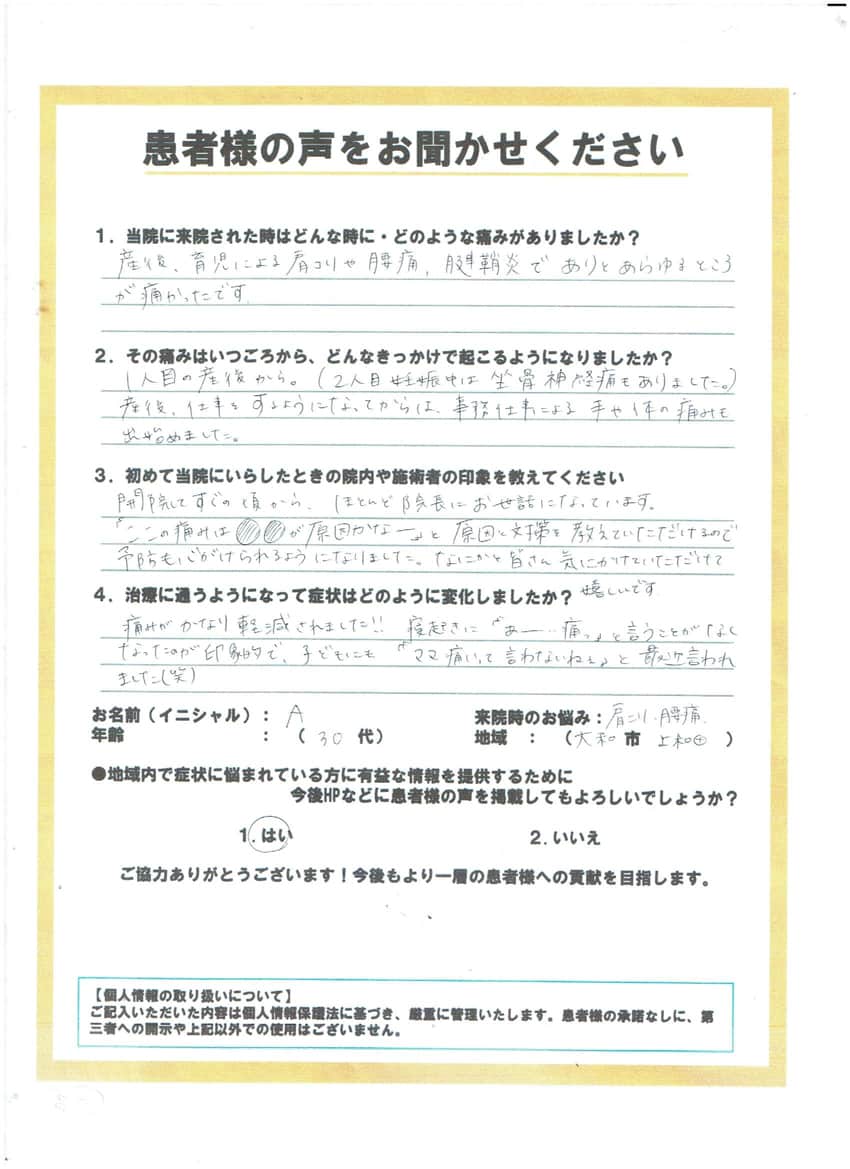 患者様の声をお聞かせください
1．当院に来院された時はどんな時に・どのような痛みがありましたか？
産後、育児による肩コリや腰痛、腱鞘炎で ありとあらゆるところ
が痛かったです。
2．その痛みはいつごろから、どんなきっかけで起こるようになりましたか？
1人目の産後から。（2人目妊娠中は 坐骨神経痛もありました。）
産後、仕事をするようになってからは、事務仕事による 手や体の痛みも
出始めました。
3．初めて当院にいらしたときの院内や施術者の印象を教えてください
開院してすぐの頃から、ほとんど院長にお世話になっています。
「ここの痛みは●●が原因かなー」と 原因と対策を教えていただけるので
予防も心がけられるようになりました。なにかと皆さん気にかけていただけて
嬉しいです
4．治療に通うようになって症状はどのように変化しましたか？
痛みがかなり軽減されました!! 寝起きに「あー…痛っ」と言うことがなく
なったのが印象的で、子どもにも「ママ痛いって言わないねぇ」と最近言われ
ました(笑)
お名前（イニシャル）： A 来院時のお悩み：肩こり・腰痛
年齢 ：（ 30 代） 地域 ：（大和 市 上和田 ）
●地域内で症状に悩まれている方に有益な情報を提供するために
今後HPなどに患者様の声を掲載してもよろしいでしょうか？
1.はい 2.いいえ
ご協力ありがとうございます！今後もより一層の患者様への貢献を目指します。
【個人情報の取り扱いについて】
ご記入いただいた内容は個人情報保護法に基づき、厳重に管理いたします。患者様の承諾なしに、第
三者への開示や上記以外での使用はございません。